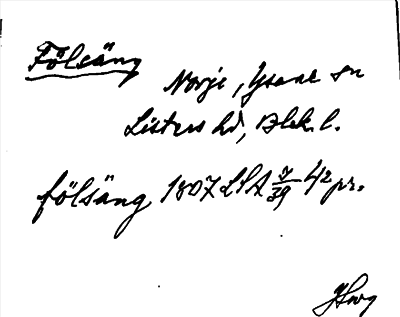 Fölsäng
Norje, Ysane sn
Listers hd, Blek. l.
fölsäng 1807 LSA 7/39 42 pr.